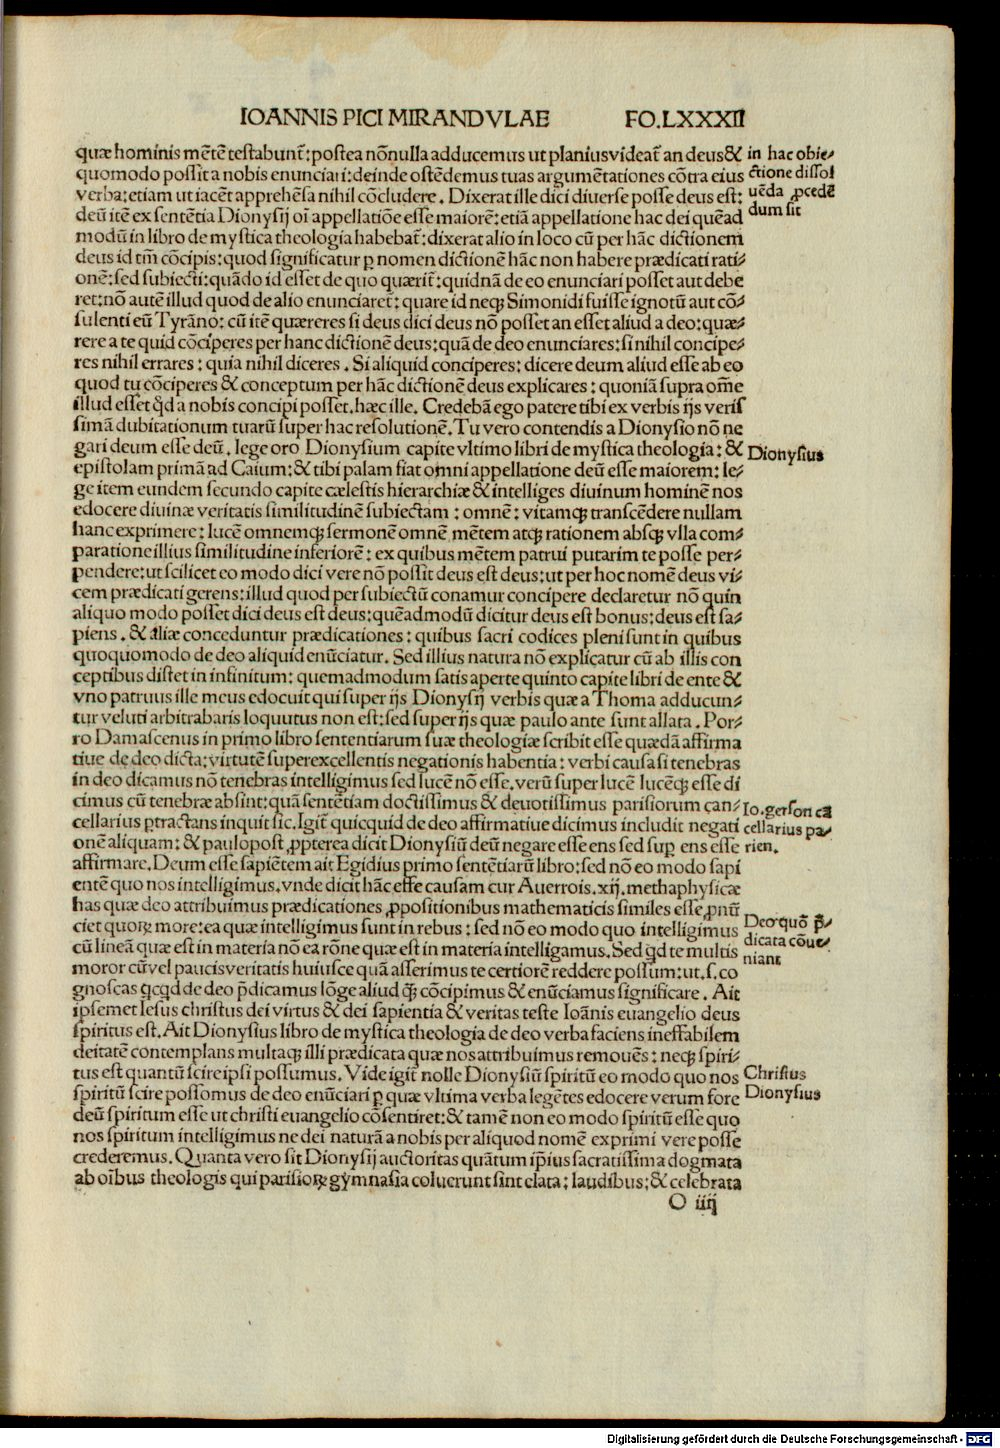 IOANNIS PICI MIRANDVLAE FO.LXXXII
quæ hominis mẽtẽ testabunt᷑: postea nõnulla adducemus ut planius videat᷑ an deus &
quomodo possit a nobis enunciari: deinde ostẽdemus tuas argumẽtationes cõtra eius
verba: etiam ut iacẽt apprehẽsa nihil cõcludere. Dixerat ille dici diuerse posse deus est:
deũ itẽ ex sentẽtia Dionysij oĩ appellatiõe esse maiorẽ: etiã appellatione hac dei quẽad
modũ in libro de mystica theologia habebat᷑: dixerat alio in loco cũ per hãc dictionem
deus id tm̃ cõcipis: quod significatur ꝑ nomen dictionẽ hãc non habere prædicati rati⸗
onẽ: sed subiecti: quãdo id esset de quo quærit᷑: quidnã de eo enunciari posset aut debe
ret: nõ autẽ illud quod de alio enunciaret᷑: quare id neqꝫ Simonidi fuisse ignotũ aut cõ⸗
sulenti eũ Tyrãno: cũ itẽ quæreres si deus dici deus nõ posset an esset aliud a deo: quæ⸗
rere a te quid cõciperes per hanc dictionẽ deus: quã de deo enunciares: si nihil concipe⸗
res nihil errares: quia nihil diceres. Si aliquid conciperes: dicere deum aliud esse ab eo
quod tu cõciperes & conceptum per hãc dictionẽ deus explicares: quoniã supra om̃e
illud esset qd̃ a nobis concipi posset. hæc ille. Credebã ego patere tibi ex verbis ijs veris
simã dubitationum tuarũ super hac resolutionẽ. Tu vero contendis a Dionysio nõ ne
gari deum esse deũ. lege oro Dionysium capite vltimo libri de mystica theologia: &
epistolam primã ad Caium: & tibi palam fiat omni appellatione deũ esse maiorem: le⸗
ge item eundem secundo capite cælestis hierarchiæ & intelliges diuinum hominẽ nos
edocere diuinæ veritatis similitudinẽ subiectam: omnẽ: vitamqꝫ transcẽdere nullam
hanc exprimere: lucẽ omnemqꝫ sermonẽ omnẽ mẽtem atqꝫ rationem absqꝫ vlla com⸗
paratione illius similitudine inferiorẽ: ex quibus mẽtem patrui putarim te posse per⸗
pendere: ut scilicet eo modo dici vere nõ possit deus est deus: ut per hoc nomẽ deus vi⸗
cem prædicati gerens: illud quod per subiectũ conamur concipere declaretur nõ quin
aliquo modo posset dici deus est deus: quẽadmodũ dicitur deus est bonus: deus est sa⸗
piens. & aliæ conceduntur prædicationes: quibus sacri codices pleni sunt in quibus
quoquomodo de deo aliquid enũciatur. Sed illius natura nõ explicatur cũ ab illis con
ceptibus distet in infinitum: quemadmodum satis aperte quinto capite libri de ente &
vno patruus ille meus edocuit qui super ijs Dionysij verbis quæ a Thoma adducun⸗
tur veluti arbitrabaris loquutus non est: sed super ijs quæ paulo ante sunt allata. Por⸗
ro Damascenus in primo libro sententiarum suæ theologiæ scribit esse quædã affirma
tiue de deo dicta: virtutẽ superexcellentis negationis habentia: verbi causa si tenebras
in deo dicamus nõ tenebras intelligimus sed lucẽ nõ esse. verũ super lucẽ lucẽqꝫ esse di
cimus cũ tenebræ absint: quã sentẽtiam doctissimus & deuotissimus parisiorum can⸗
cellarius ꝑtractans inquit sic. Igit᷑ quicquid de deo affirmatiue dicimus includit negati
onẽ aliquam: & paulopost ꝓpterea dicit Dionysiũ deũ negare esse ens sed suꝑ ens esse
affirmare. Deum esse sapiẽtem ait Egidius primo sentẽtiarũ libro: sed nõ eo modo sapi
entẽ quo nos intelligimus. vnde dicit hãc esse causam cur Auerrois. xij. methaphysicæ
has quæ deo attribuimus prædicationes ꝓpositionibus mathematicis similes esse ꝓnũ
ciet quoꝝ more: ea quæ intelligimus sunt in rebus: sed nõ eo modo quo intelligimus
cũ lineã quæ est in materia nõ ea rõne quæ est in materia intelligamus. Sed qd̃ te multis
moror cũ vel paucis veritatis huiusce quã asserimus te certiorẽ reddere possum: ut. s. co
gnoscas qcqd de deo p̃dicamus lõge aliud qꝫ̃ cõcipimus & enũciamus significare. Ait
ipsemet Iesus christus dei virtus & dei sapientia & veritas teste Ioãnis euangelio deus
spiritus est. Ait Dionysius libro de mystica theologia de deo verba faciens ineffabilem
deitatẽ contemplans multaqꝫ illi prædicata quæ nos attribuimus remouẽs: neqꝫ spiri⸗
tus est quantũ scire ipsi possumus. Vide igit᷑ nolle Dionysiũ spiritũ eo modo quo nos
spiritũ scire possomus de deo enũciari ꝑ quæ vltima verba legẽtes edocere verum fore
deũ spiritum esse ut christi euangelio cõsentiret: & tamẽ non eo modo spiritũ esse quo
nos spiritum intelligimus ne dei naturã a nobis per aliquod nomẽ exprimi vere posse
crederemus. Quanta vero sit Dionysij auctoritas quãtum ip̃ius sacratissima dogmata
ab oĩbus theologis qui parisioꝝ gymnasia coluerunt sint elata: laudibus: & celebrata
O iiij
in hac obie⸗
ctione dissol
uẽda ꝓcedẽ
dum sit
Dionysius
Io. gerson cã
cellarius pa⸗
rien.
Deo quõ p̃⸗
dicata cõue⸗
niant
Christus
Dionysius
Digitalisierung gefördert durch die Deutsche Forschungsgemeinschaft - DFG